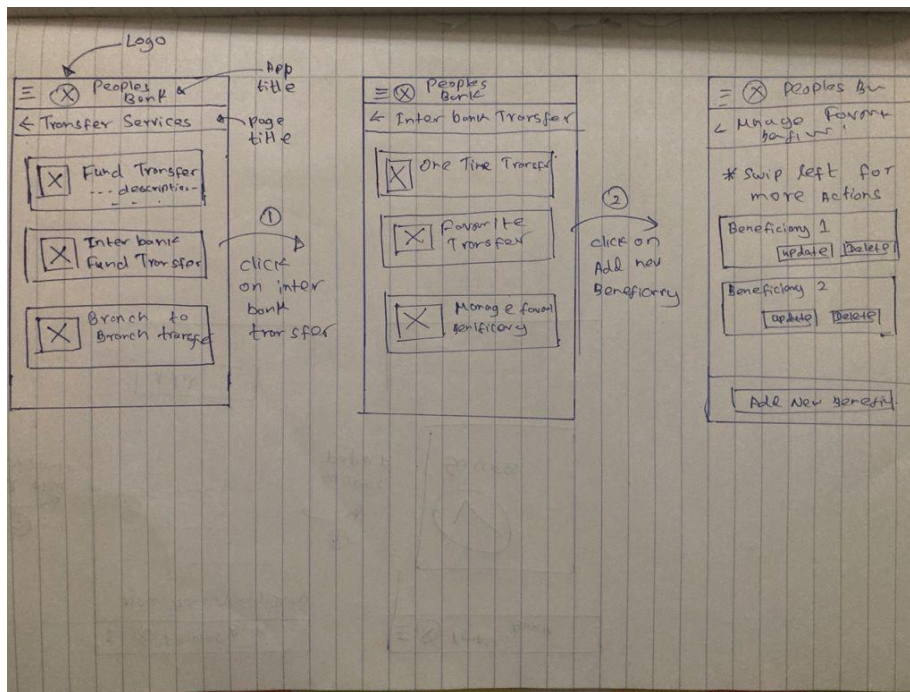 Logo
App
title
page
title
Peoples
Bank
← Transfer Services
Fund Transfer
... description...
Inter bank
Fund Transfer
Branch to
Branch transfer
①
click
on inter
bank
transfer
Peoples
Bank
← Inter bank Transfer
One Time Transfer
Favorite
Transfer
Manage favori
Benificiary
②
click on
Add new
Beneficiary
Peoples Ban
Manage
* Swip left for
more Actions
Beneficiary 1
update Delete
Beneficiary 2
update Delete
Add New Benefi